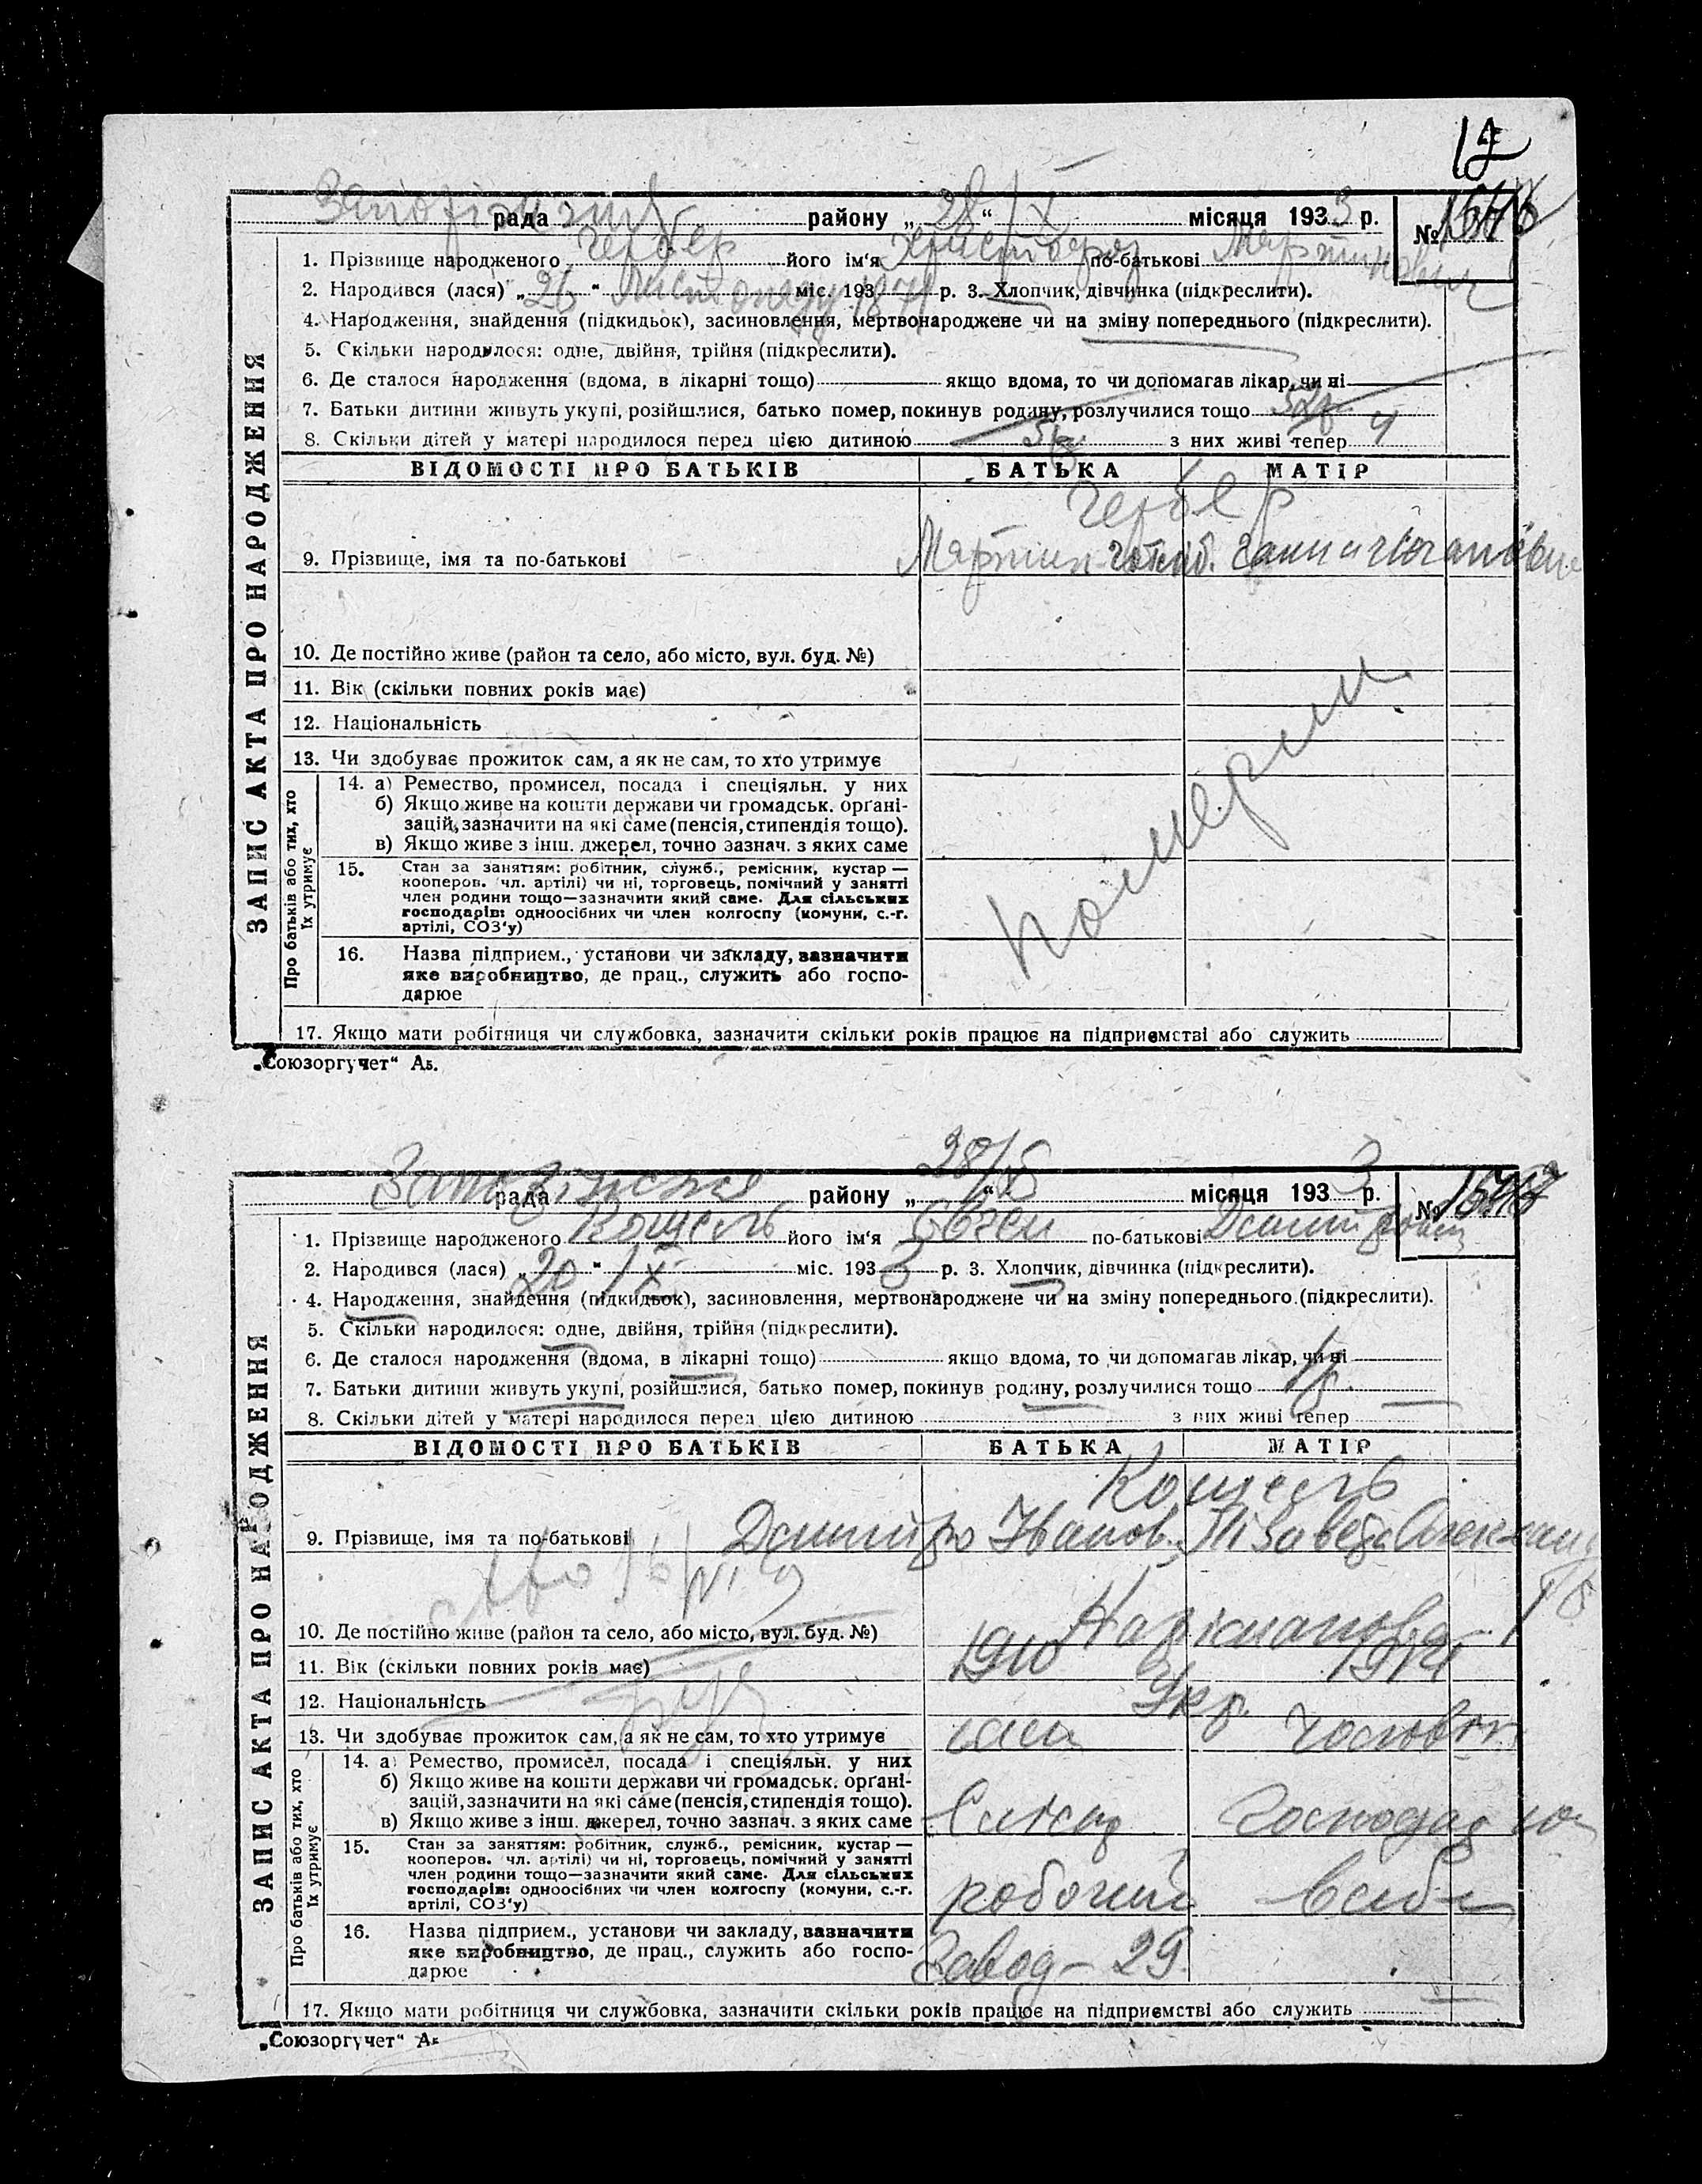 17
рада району „28“ / X місяця 1933 р. №
1. Прізвище народженого Гербер його ім‘я по-батькові Мартинович
2. Народився (лася) „26“ Листопаду міс. 193 187 р. 3. Хлопчик, дівчинка (підкреслити).
4. Народження, знайдення (підкидьок), засиновлення, мертвонароджене чи на зміну попереднього (підкреслити).
5. Скільки народилося: одне, двійня, трійня (підкреслити).
6. Де сталося народження (вдома, в лікарні тощо) якщо вдома, то чи допомагав лікар, чи ні
7. Батьки дитини живуть укупі, розійшлися, батько помер, покинув родину, розлучилися тощо
8. Скільки дітей у матері народилося перед цією дитиною 5 з них живі тепер 4
ВІДОМОСТІ ПРО БАТЬКІВ БАТЬКА МАТІР
Гербер
9. Прізвище, імя та по-батькові Мартин
10. Де постійно живе (район та село, або місто, вул. буд. №)
11. Вік (скільки повних років має)
12. Національність
13. Чи здобуває прожиток сам, а як не сам, то хто утримує
померли
14. а) Ремество, промисел, посада і спеціяльн. у них
б) Якщо живе на кошти держави чи громадськ. орґані-
зацій, зазначити на які саме (пенсія, стипендія тощо).
в) Якщо живе з інш. джерел, точно зазнач. з яких саме
15. Стан за заняттям: робітник, служб., ремісник, кустар —
кооперов. чл. артілі) чи ні, торговець, помічний у занятті
член родини тощо—зазначити який саме. Для сільських
господарів: одноосібних чи член колгоспу (комуни, с.-г.
артілі, СОЗ‘у)
16. Назва підприєм., установи чи закладу, зазначити
яке виробництво, де прац., служить або госпо-
дарює
17. Якщо мати робітниця чи службовка, зазначити скільки років працює на підприємстві або служить
ЗАПИС АКТА ПРО НАРОДЖЕННЯ
Про батьків або тих, хто
їх утримує
„Союзоргучет“ Аб.
рада району „28/X“ місяця 1933 р. №
1. Прізвище народженого Кошель його ім‘я Євген по-батькові Дмитрович
2. Народився (лася) „20“ / X міс. 1933 р. 3. Хлопчик, дівчинка (підкреслити).
4. Народження, знайдення (підкидьок), засиновлення, мертвонароджене чи на зміну попереднього (підкреслити).
5. Скільки народилося: одне, двійня, трійня (підкреслити).
6. Де сталося народження (вдома, в лікарні тощо) якщо вдома, то чи допомагав лікар, чи ні
7. Батьки дитини живуть укупі, розійшлися, батько помер, покинув родину, розлучилися тощо
8. Скільки дітей у матері народилося перед цією дитиною з них живі тепер
ВІДОМОСТІ ПРО БАТЬКІВ БАТЬКА МАТІР
Кошель
9. Прізвище, імя та по-батькові Дмитро Іванов. Лізавета
10. Де постійно живе (район та село, або місто, вул. буд. №)
11. Вік (скільки повних років має) 1910
12. Національність Укр.
13. Чи здобуває прожиток сам, а як не сам, то хто утримує сам чоловік
14. а) Ремество, промисел, посада і спеціяльн. у них
б) Якщо живе на кошти держави чи громадськ. орґані-
зацій, зазначити на які саме (пенсія, стипендія тощо).
в) Якщо живе з інш. джерел, точно зазнач. з яких саме Слюсар
15. Стан за заняттям: робітник, служб., ремісник, кустар —
кооперов. чл. артілі) чи ні, торговець, помічний у занятті
член родини тощо—зазначити який саме. Для сільських
господарів: одноосібних чи член колгоспу (комуни, с.-г.
артілі, СОЗ‘у) робочий
16. Назва підприєм., установи чи закладу, зазначити
яке виробництво, де прац., служить або госпо-
дарює Завод - 29
17. Якщо мати робітниця чи службовка, зазначити скільки років працює на підприємстві або служить
ЗАПИС АКТА ПРО НАРОДЖЕННЯ
Про батьків або тих, хто
їх утримує
„Союзоргучет“ Аб